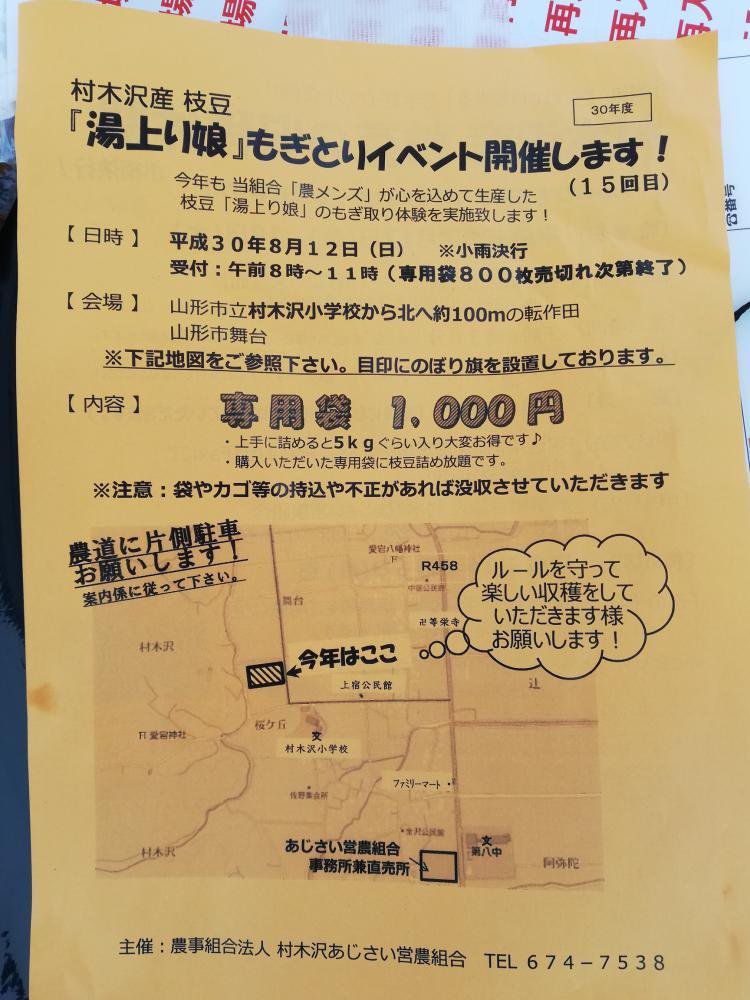 村木沢産 枝豆
30年度
『湯上り娘』もぎとりイベント開催します！
（１５回目）
今年も 当組合「農メンズ」が心を込めて生産した
枝豆「湯上り娘」のもぎ取り体験を実施致します！
【 日時 】 平成３０年８月１２日（日） ※小雨決行
受付：午前８時～１１時（専用袋８００枚売切れ次第終了）
【 会場 】 山形市立村木沢小学校から北へ約100mの転作田
山形市舞台
※下記地図をご参照下さい。目印にのぼり旗を設置しております。
【 内容 】 専用袋 １，０００円
・上手に詰めると５ｋｇぐらい入り大変お得です♪
・購入いただいた専用袋に枝豆詰め放題です。
※注意：袋やカゴ等の持込や不正があれば没収させていただきます
農道に片側駐車
お願いします！
案内係に従って下さい。
愛宕八幡神社
R458
中宿公民館
ルールを守って
楽しい収穫をして
いただきます様
お願いします！
舞台
卍等栄寺
村木沢
今年はここ
上宿公民館
辻
桜ケ丘
愛宕神社
文
村木沢小学校
ファミリーマート
佐野集会所
金沢公民館
文
第八中
村木沢
あじさい営農組合
事務所兼直売所
阿弥陀
主催：農事組合法人 村木沢あじさい営農組合 TEL ６７４－７５３８